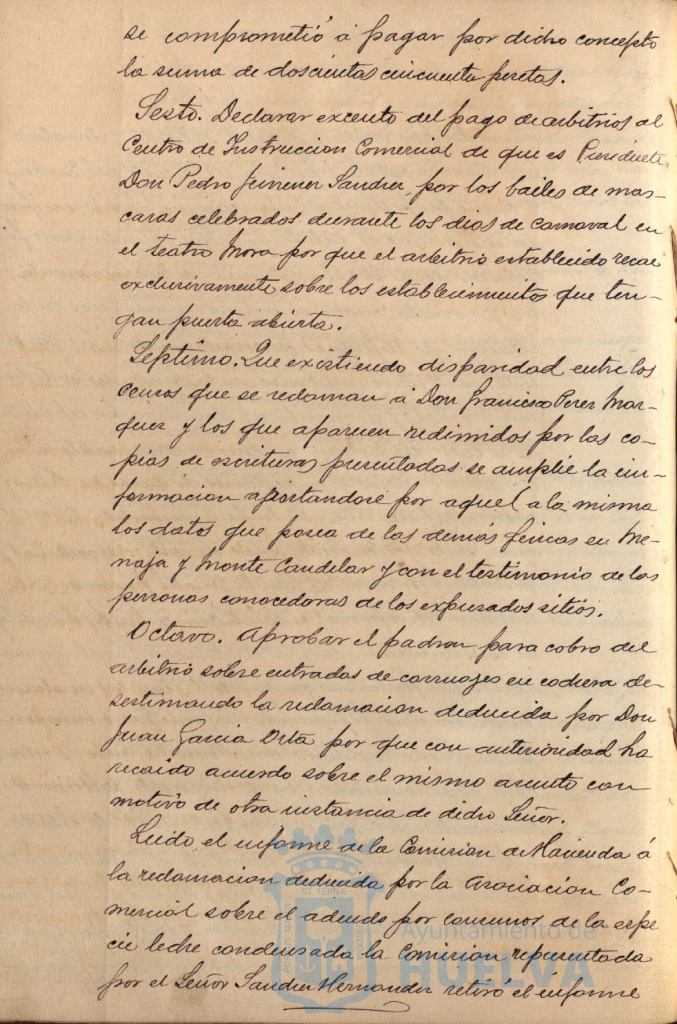 se comprometió á pagar por dicho concepto
la suma de doscientas cincuenta pesetas.
Sexto. Declarar excento del pago de arbitrios al
Centro de Instruccion Comercial de que es Presidente
Don Pedro Jimenez Sandez, por los bailes de mas-
caras celebrados durante los dias de Carnaval en
el teatro Mora por que el arbitrio establecido recae
exclusivamente sobre los establecimientos que ten-
gan puerta abierta.
Septimo. Que existiendo disparidad entre los
censos que se reclaman á Don Francisco Perez Mar-
quez y los que aparecen redimidos por las co-
pias de escrituras presentadas se amplie la in-
formacion aportandose por aquel a la misma
los datos que posea de las demás fincas en Me-
naja y Monte Candelar y con el testimonio de las
personas conocedoras de los expresados sitios.
Octavo. Aprobar el padron para cobro del
arbitrio sobre entradas de carruajes en cochera de-
sestimando la reclamacion deducida por Don
Juan Garcia Orta por que con anterioridad ha
recaido acuerdo sobre el mismo asunto con
motivo de otra instancia de dicho Señor.
Leido el informe de la Comision de Hacienda á
la reclamacion deducida por la Asociacion Co-
mercial sobre el adeudo por consumos de la espe
cie leche condensada la Comision representada
por el Señor Sandez Hernandez retiró el informe
Ayuntamiento de
HUELVA